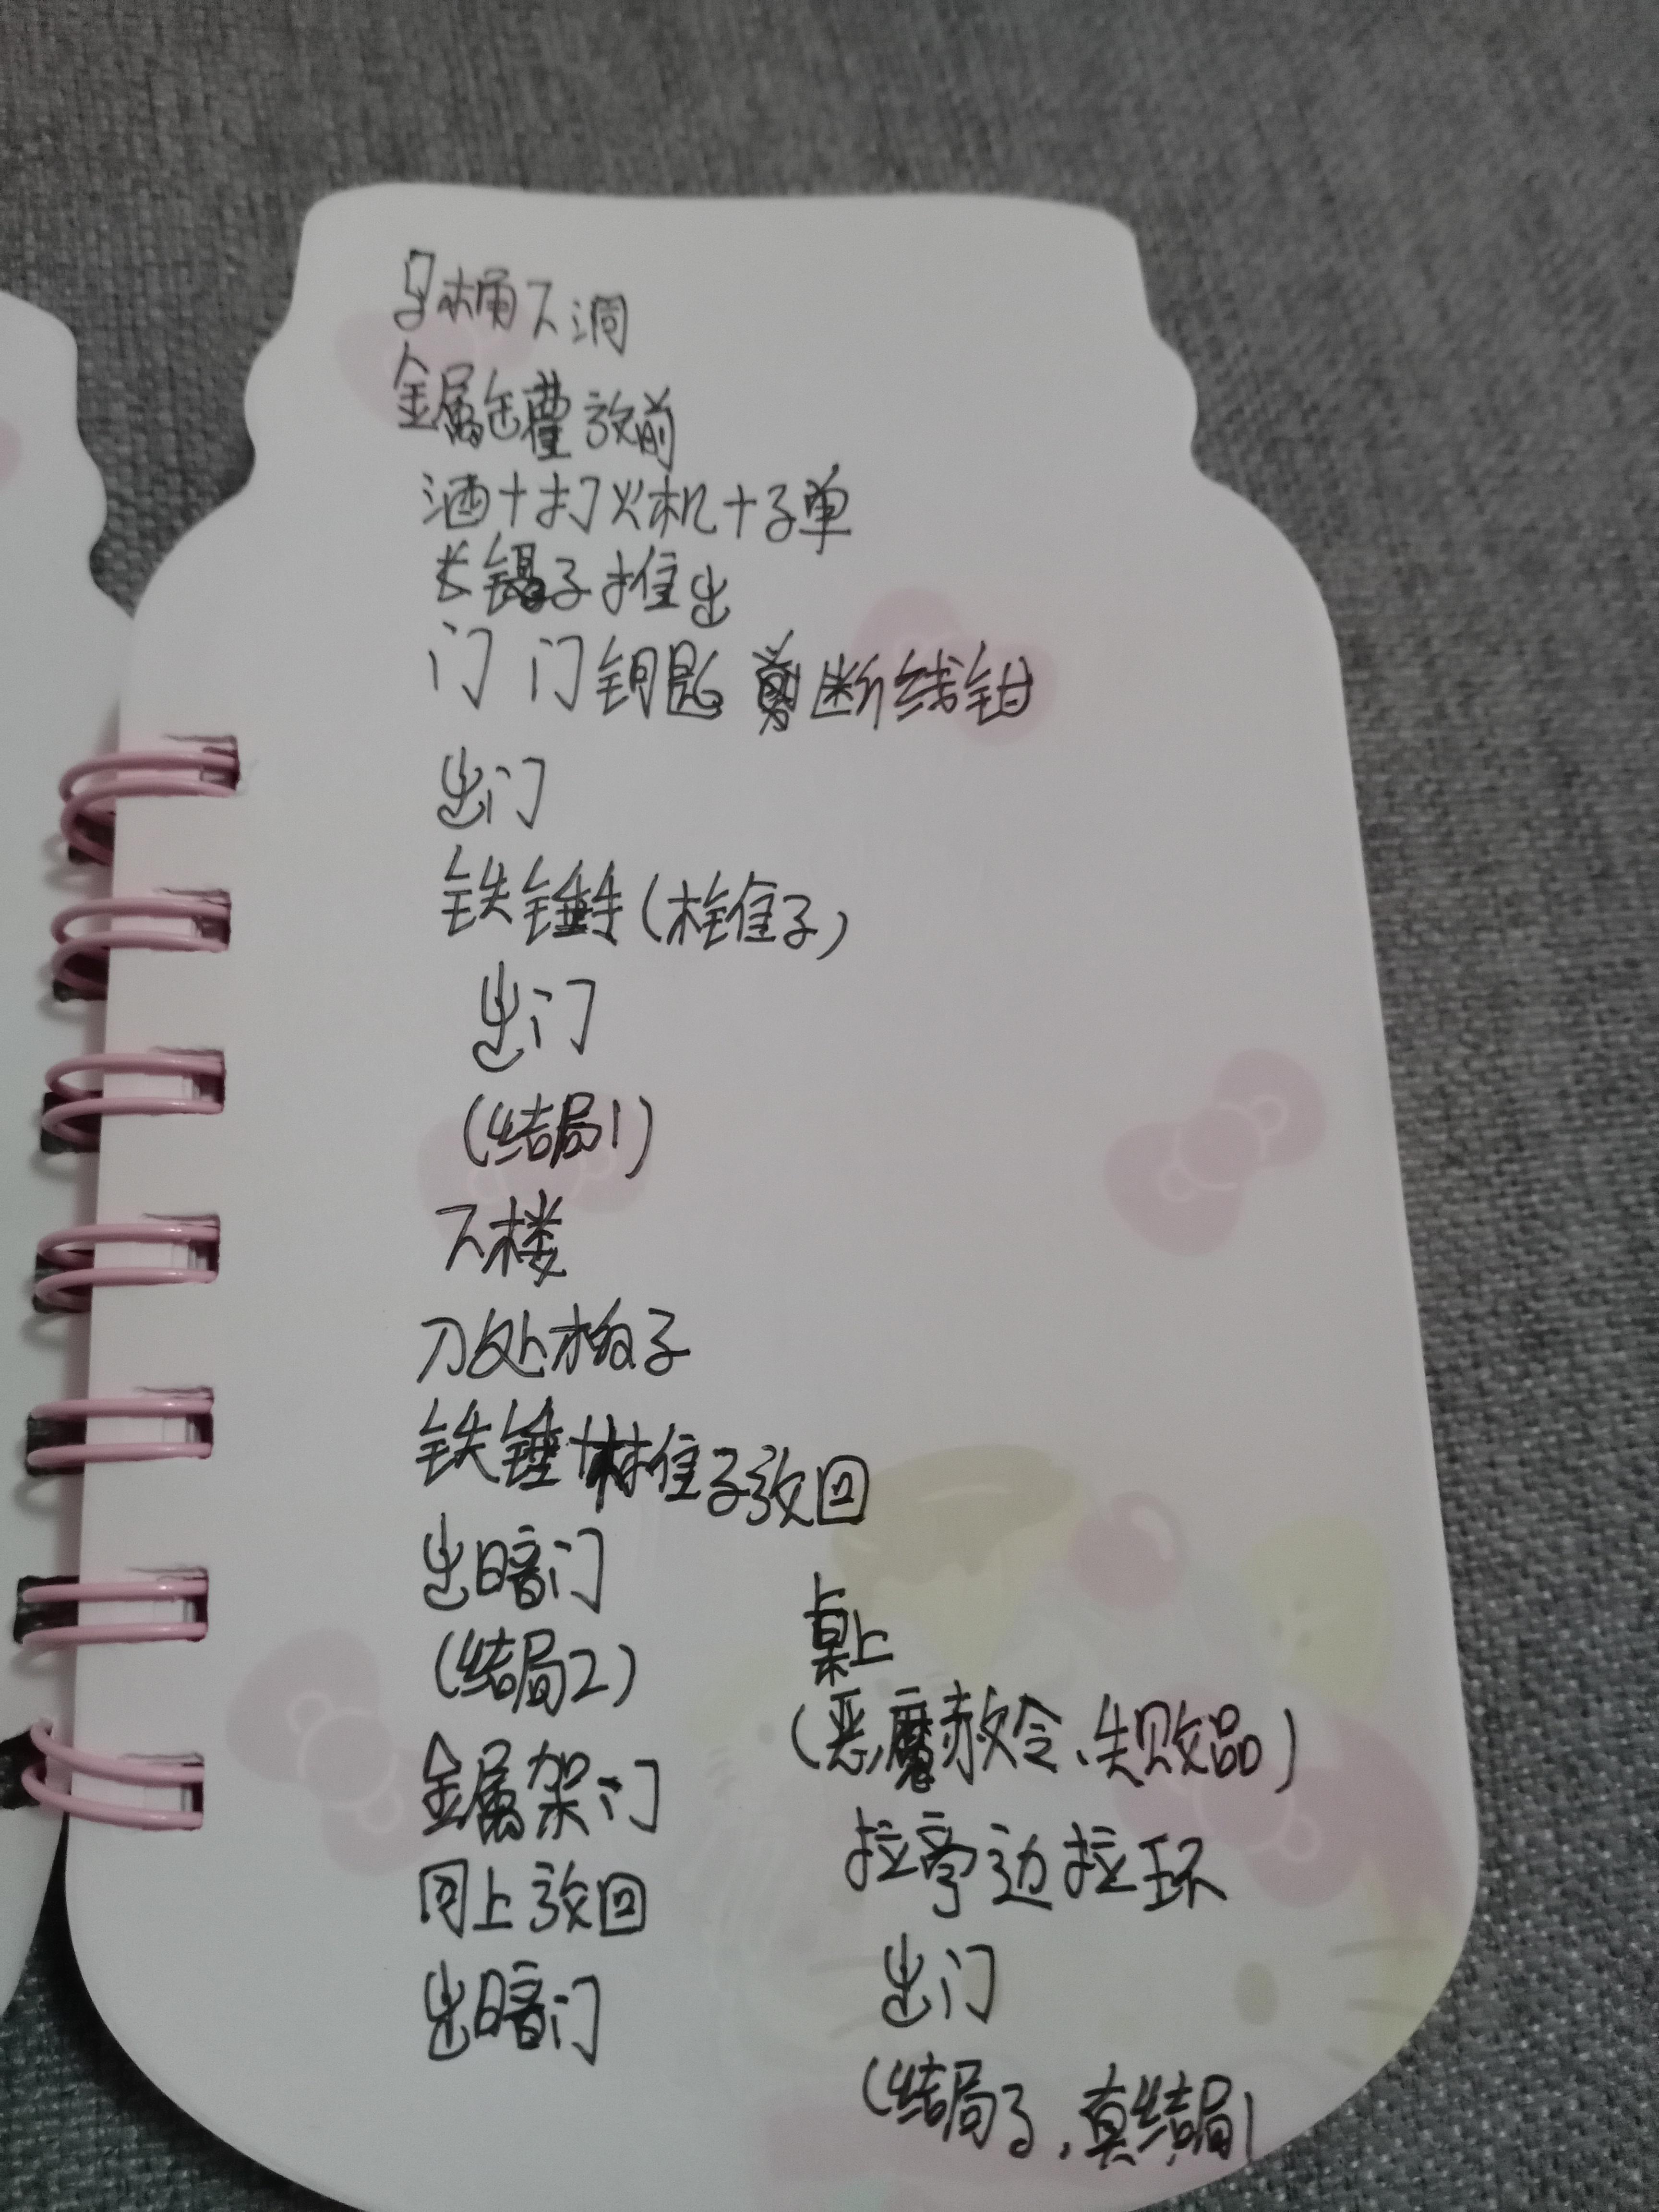 桶下洞
金属 放前
酒+打火机+子单
长镊子推出
门 门钥匙 剪断线钳
出门
铁锤 (子)
出门
(结局1)
下楼
刀处子
铁锤+子放回
出暗门
(结局2)
金属架门
同上放回
出暗门
桌上
(恶魔赦令、失败品)
拉 边拉环
出门
(结局3、真结局1